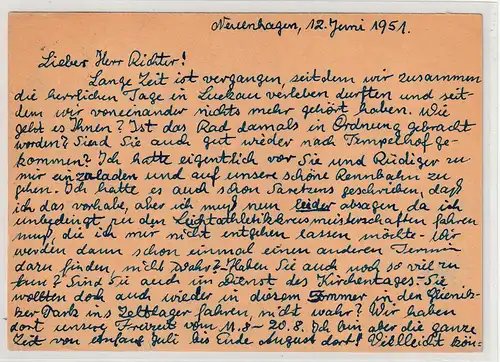 Neuenhagen, 12. Juni 1951.
Lieber Herr Richter!
Lange Zeit ist vergangen, seitdem wir zusammen
die herrlichen Tage in Luckau verleben durften und seit
dem wir voneinander nichts mehr gehört haben. Wie
geht es Ihnen? Ist das Rad damals in Ordnung gebracht
worden? Sind Sie auch gut wieder nach Tempelhof ge-
kommen? Ich hatte eigentlich vor Sie und Rüdiger zu
mir einzuladen und auf unsere schöne Rennbahn zu
gehen. Ich hatte es auch schon geschrieben, daß
ich das vorhabe, aber ich muß nun leider absagen, da ich
unbedingt zu den Leichtathletikkreismeisterschaften fahren
muß, die ich mir nicht entgehen lassen möchte. Wir
werden dann schon einmal einen anderen Termin
dazu finden, nicht wahr? Haben Sie auch noch so viel zu
tun? Sind Sie auch im Dienst des Kirchentages. Sie
wollten doch auch wieder in diesem Sommer in den
Park ins Zeltlager fahren, nicht wahr? Wir haben
dort unsere Freizeit vom 11.8 – 20.8. Ich bin aber die ganze
Zeit von Juli bis Ende August dort! Vielleicht kön-